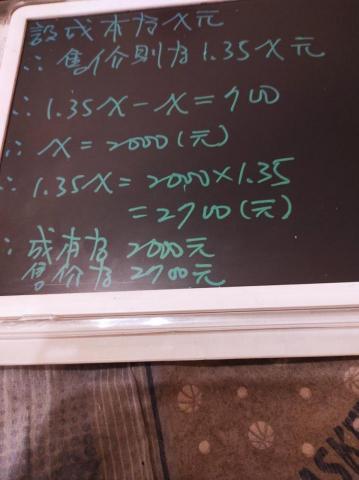 設成本為X元
∴售价則为1.35X元
∴1.35X-X=700
∴X=2000(元)
∴1.35X=2000×1.35
=2700(元)
∴成本为2000元
售价为2700元
ASKET